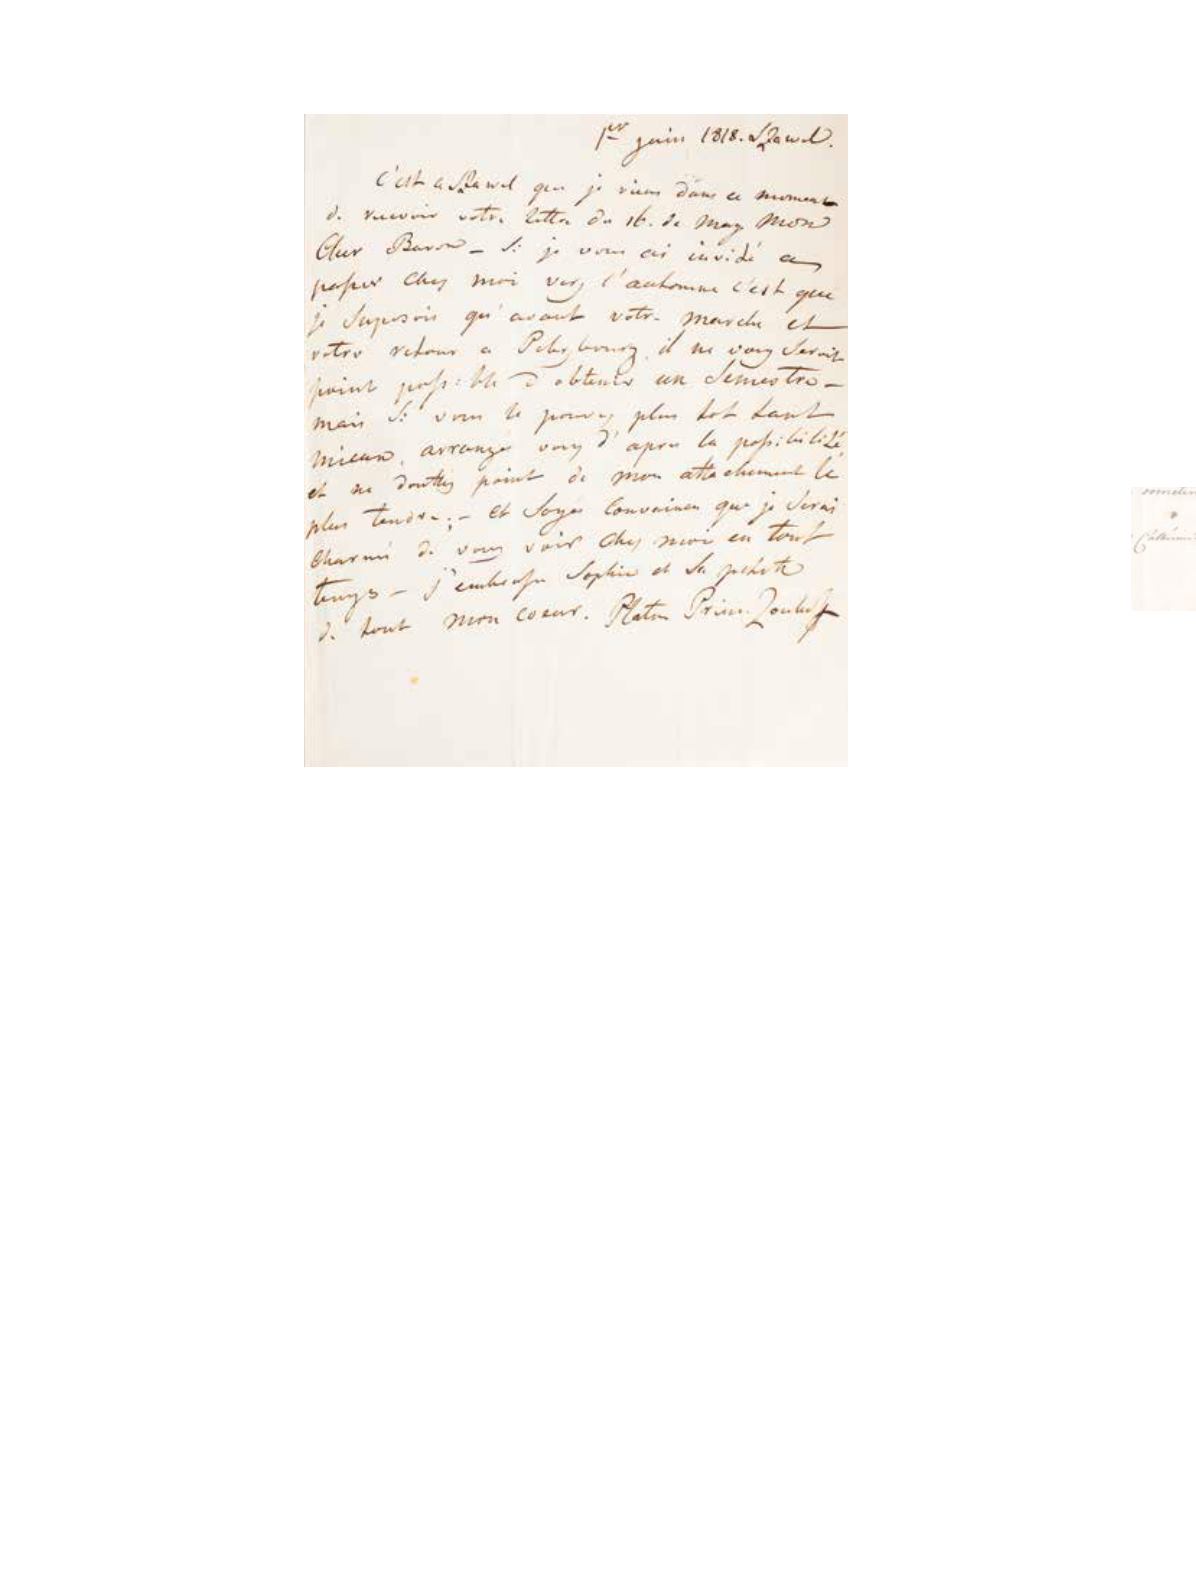 1er juin 1818. Szawel.
C'est a Szawel que je viens dans ce moment
de recevoir votre lettre du 16. de may Mon
Cher Baron – Si je vous ai invité a
passer chez moi vers l'automne c'est que
je suposois qu'avant votre marche et
votre retour a Petersbourg, il ne vous seroit
point possible d'obtenir un Semestre –
mais Si vous le pouvez plus tot tant
mieux, arrangés vous d'apres la possibilité
et ne douttez point de mon attachement le
plus tendre; – et Soyés Convaincu que je Serai
Charmé de vous voir chez moi en tout
temps – j'embrasse Sophie et Sa petite
de tout mon coeur. Platon Prince Zouboff